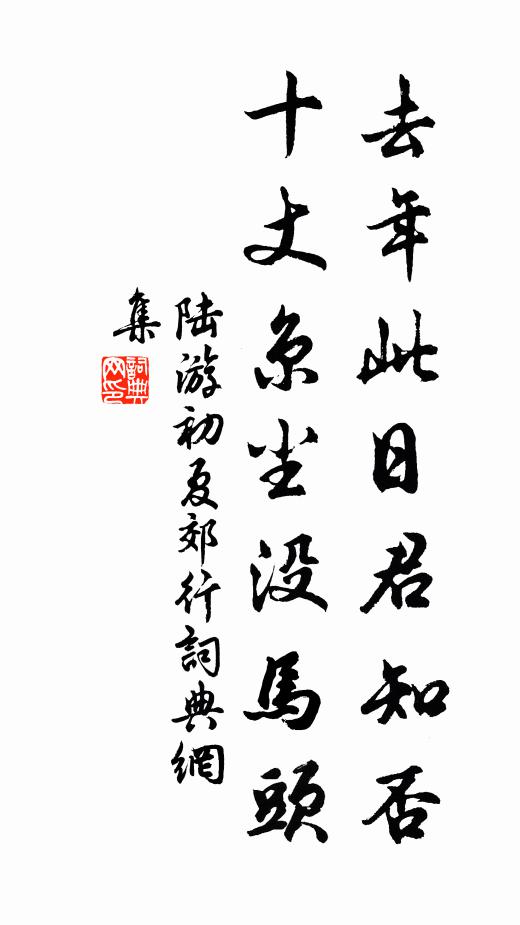 去年此日君知否
十丈京尘没馬頭
陆游初夏郊行詞典網
集
詞典网印